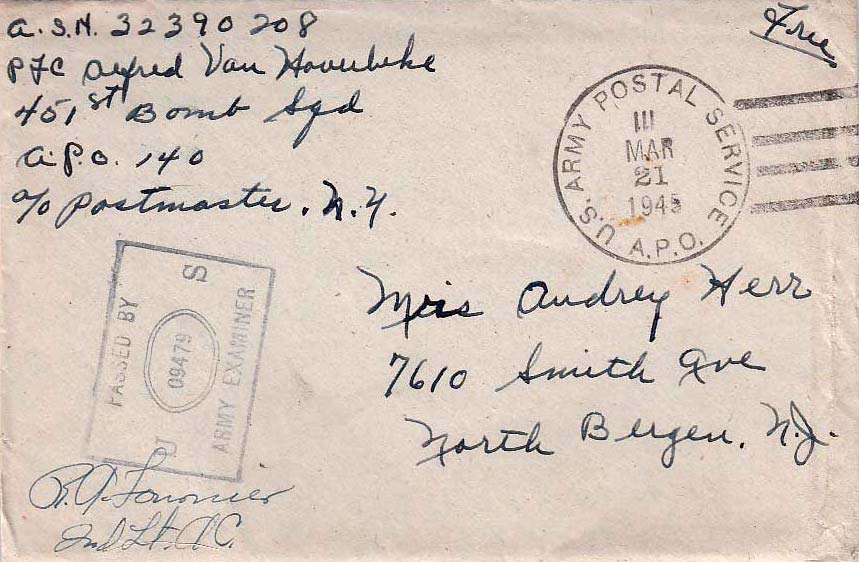 A.S.N. 32390208
Free
PFC Alfred Van Hoverbeke
451st Bomb Sqd
A.P.O. 140
c/o Postmaster, N.Y.
U.S. ARMY POSTAL SERVICE
A.P.O.
MAR
21
1945
Miss Audrey Herr
7610 Smith Ave
North Bergen, N.J.
PASSED BY
U S
09479
ARMY EXAMINER
2nd Lt. A.C.